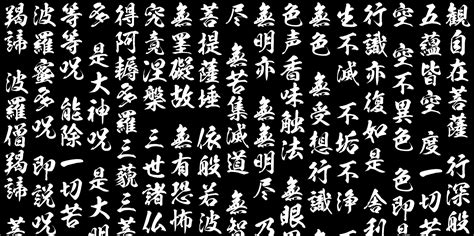 観自在菩薩 行深般
五蘊皆空 度一切
空 空不異色 色即
行識亦復如是 舎利
生不滅 不垢不浄
色 無受想行識
色声香味触法 無眼
無明亦 無明尽 乃
尽 無苦集滅道 無智
菩提薩埵 依般若波
無罣礙故 無有恐怖
究竟涅槃 三世諸仏
得阿耨多羅三藐三
多 是大神呪 是大
等等呪 能除一切苦
波羅蜜多呪 即説呪
羯諦 波羅僧羯諦 菩